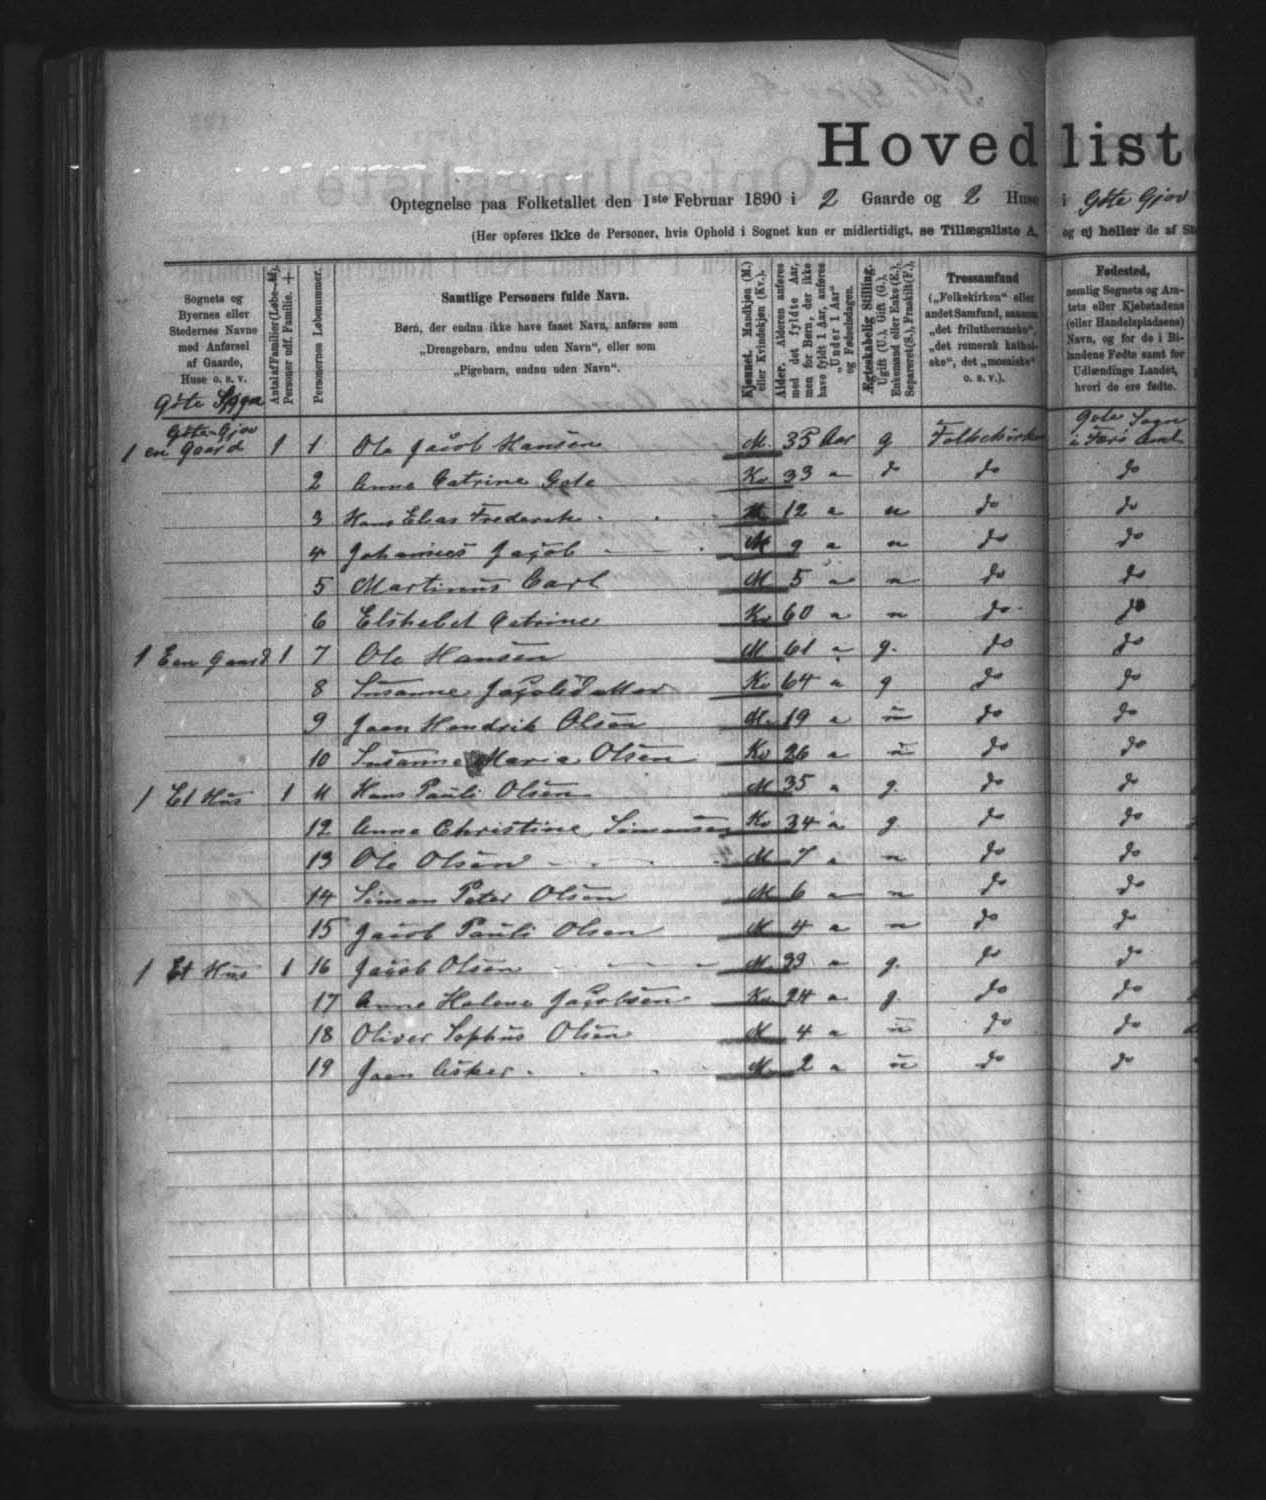 Hovedliste
Optegnelse paa Folketallet den 1ste Februar 1890 i 2 Gaarde og 2 Huse i Gøte Gjov
(Her opføres ikke de Personer, hvis Ophold i Sognet kun er midlertidigt, se Tillægsliste A, og ej heller de af
Sognets og Byernes eller Stedernes Navne med Anførsel af Gaarde, Huse o. s. v.
Antal af Familier
Personer udf. Familie.
Personernes Løbenummer.
Samtlige Personers fulde Navn.
Børn, der endnu ikke have faaet Navn, anføres som
„Drengebarn, endnu uden Navn“, eller som
„Pigebarn, endnu uden Navn“.
Kjønnet. Mandkjøn (M.) eller Kvindekjøn (Kv.).
Alder. Alderen anføres med det fyldte Aar, men for Børn, der ikke have fyldt 1 Aar, anføres „Under 1 Aar“ og Fødselsdagen.
Ægteskabelig Stilling. Ugift (U.), Gift (G.), Enkemand eller Enke (E.), Separeret (S.), Fraskilt (F.).
Trossamfund („Folkekirken“ eller andet Samfund, saasom „det frilutheranske“, „det romersk katholske“, det „mosaiske“ o. s. v.).
Fødested, nemlig Sognets og Amtets eller Kjøbstadens (eller Handelspladsens) Navn, og for de i Bilandene Fødte samt for Udlændinge Landet, hvori de ere fødte.
Gøte Sogn
Gøte Gjov
1 en Gaard 1 1 Ole Jacob Hansen M. 35 Aar g Folkekirken Gøte Sogn i Færø Amt
2 Anna Catrine Gote Kv 33 do do do
3 Hans Elias Frederik 12 u do do
4 Johannes Jacob M 9 u do do
5 Martinus Carl M 5 u do do
6 Elsbebet Catrine Kv 60 u do do
1 Een Gaard 1 7 Ole Hansen M 61 g. do do
8 Susanne Jacobsdatter Kv 64 g do do
9 Joen Hendrik Olsen M. 19 u do do
10 Susanne Maria Olsen Kv 26 u do do
1 Et Hus 1 11 Hans Pauli Olsen M 35 g. do do
12 Anna Christine Simonsen Kv 34 g. do do
13 Ole Olsen M 7 u do do
14 Simon Peter Olsen M 6 u do do
15 Jacob Pauli Olsen M 4 u do do
1 Et Hus 1 16 Jacob Olsen M. 33 g. do do
17 Anne Helene Jacobsen Kv 24 g. do do
18 Oliver Sophus Olsen M 4 u do do
19 Joen Asker M 2 u do do